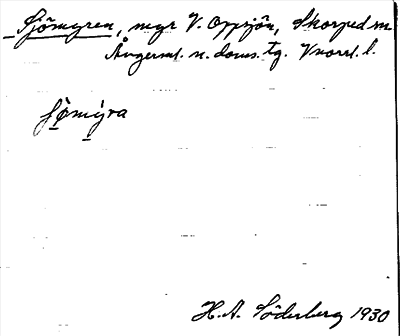 Sjömyren, myr V. Oppsjön, Skorped sn
Ångerml. n. doms. tg. Vnorrl. l.
sjömýra
H.A. Söderberg 1930